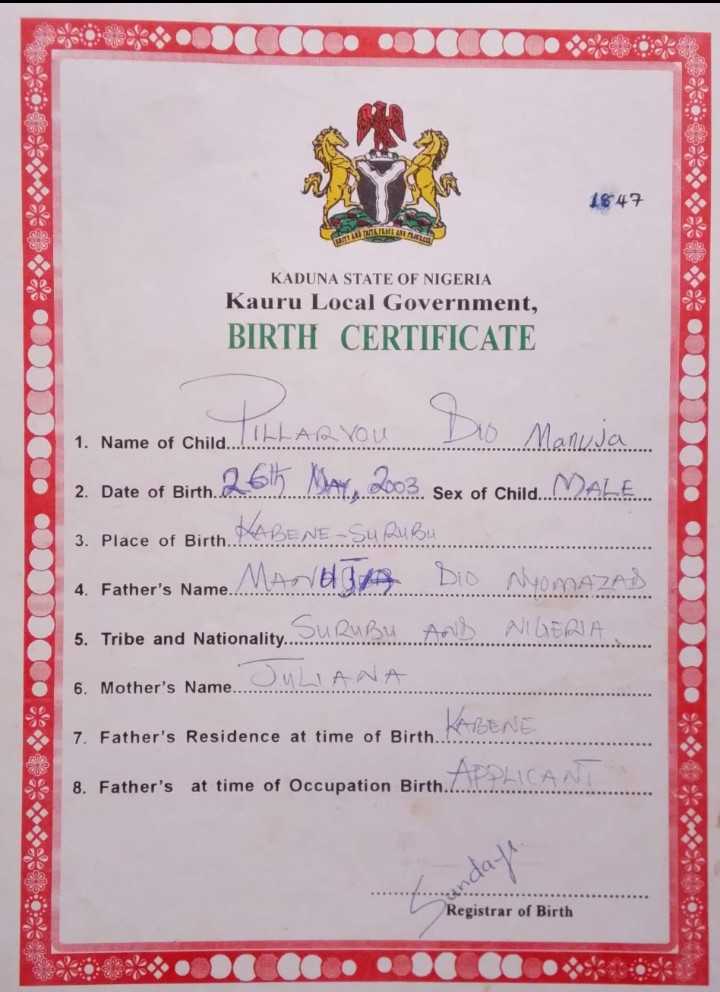 UNITY AND FAITH, PEACE AND PROGRESS
1847
KADUNA STATE OF NIGERIA
Kauru Local Government,
BIRTH CERTIFICATE
1. Name of Child PILLARYOU DIO Manuja
2. Date of Birth 26th MAY, 2003 Sex of Child MALE
3. Place of Birth KABENE-SURUBU
4. Father's Name MANUJA DIO NYOMAZAB
5. Tribe and Nationality SURUBU AND NIGERIA
6. Mother's Name JULIANA
7. Father's Residence at time of Birth KABENE
8. Father's at time of Occupation Birth APPLICANT
Sunday
Registrar of Birth